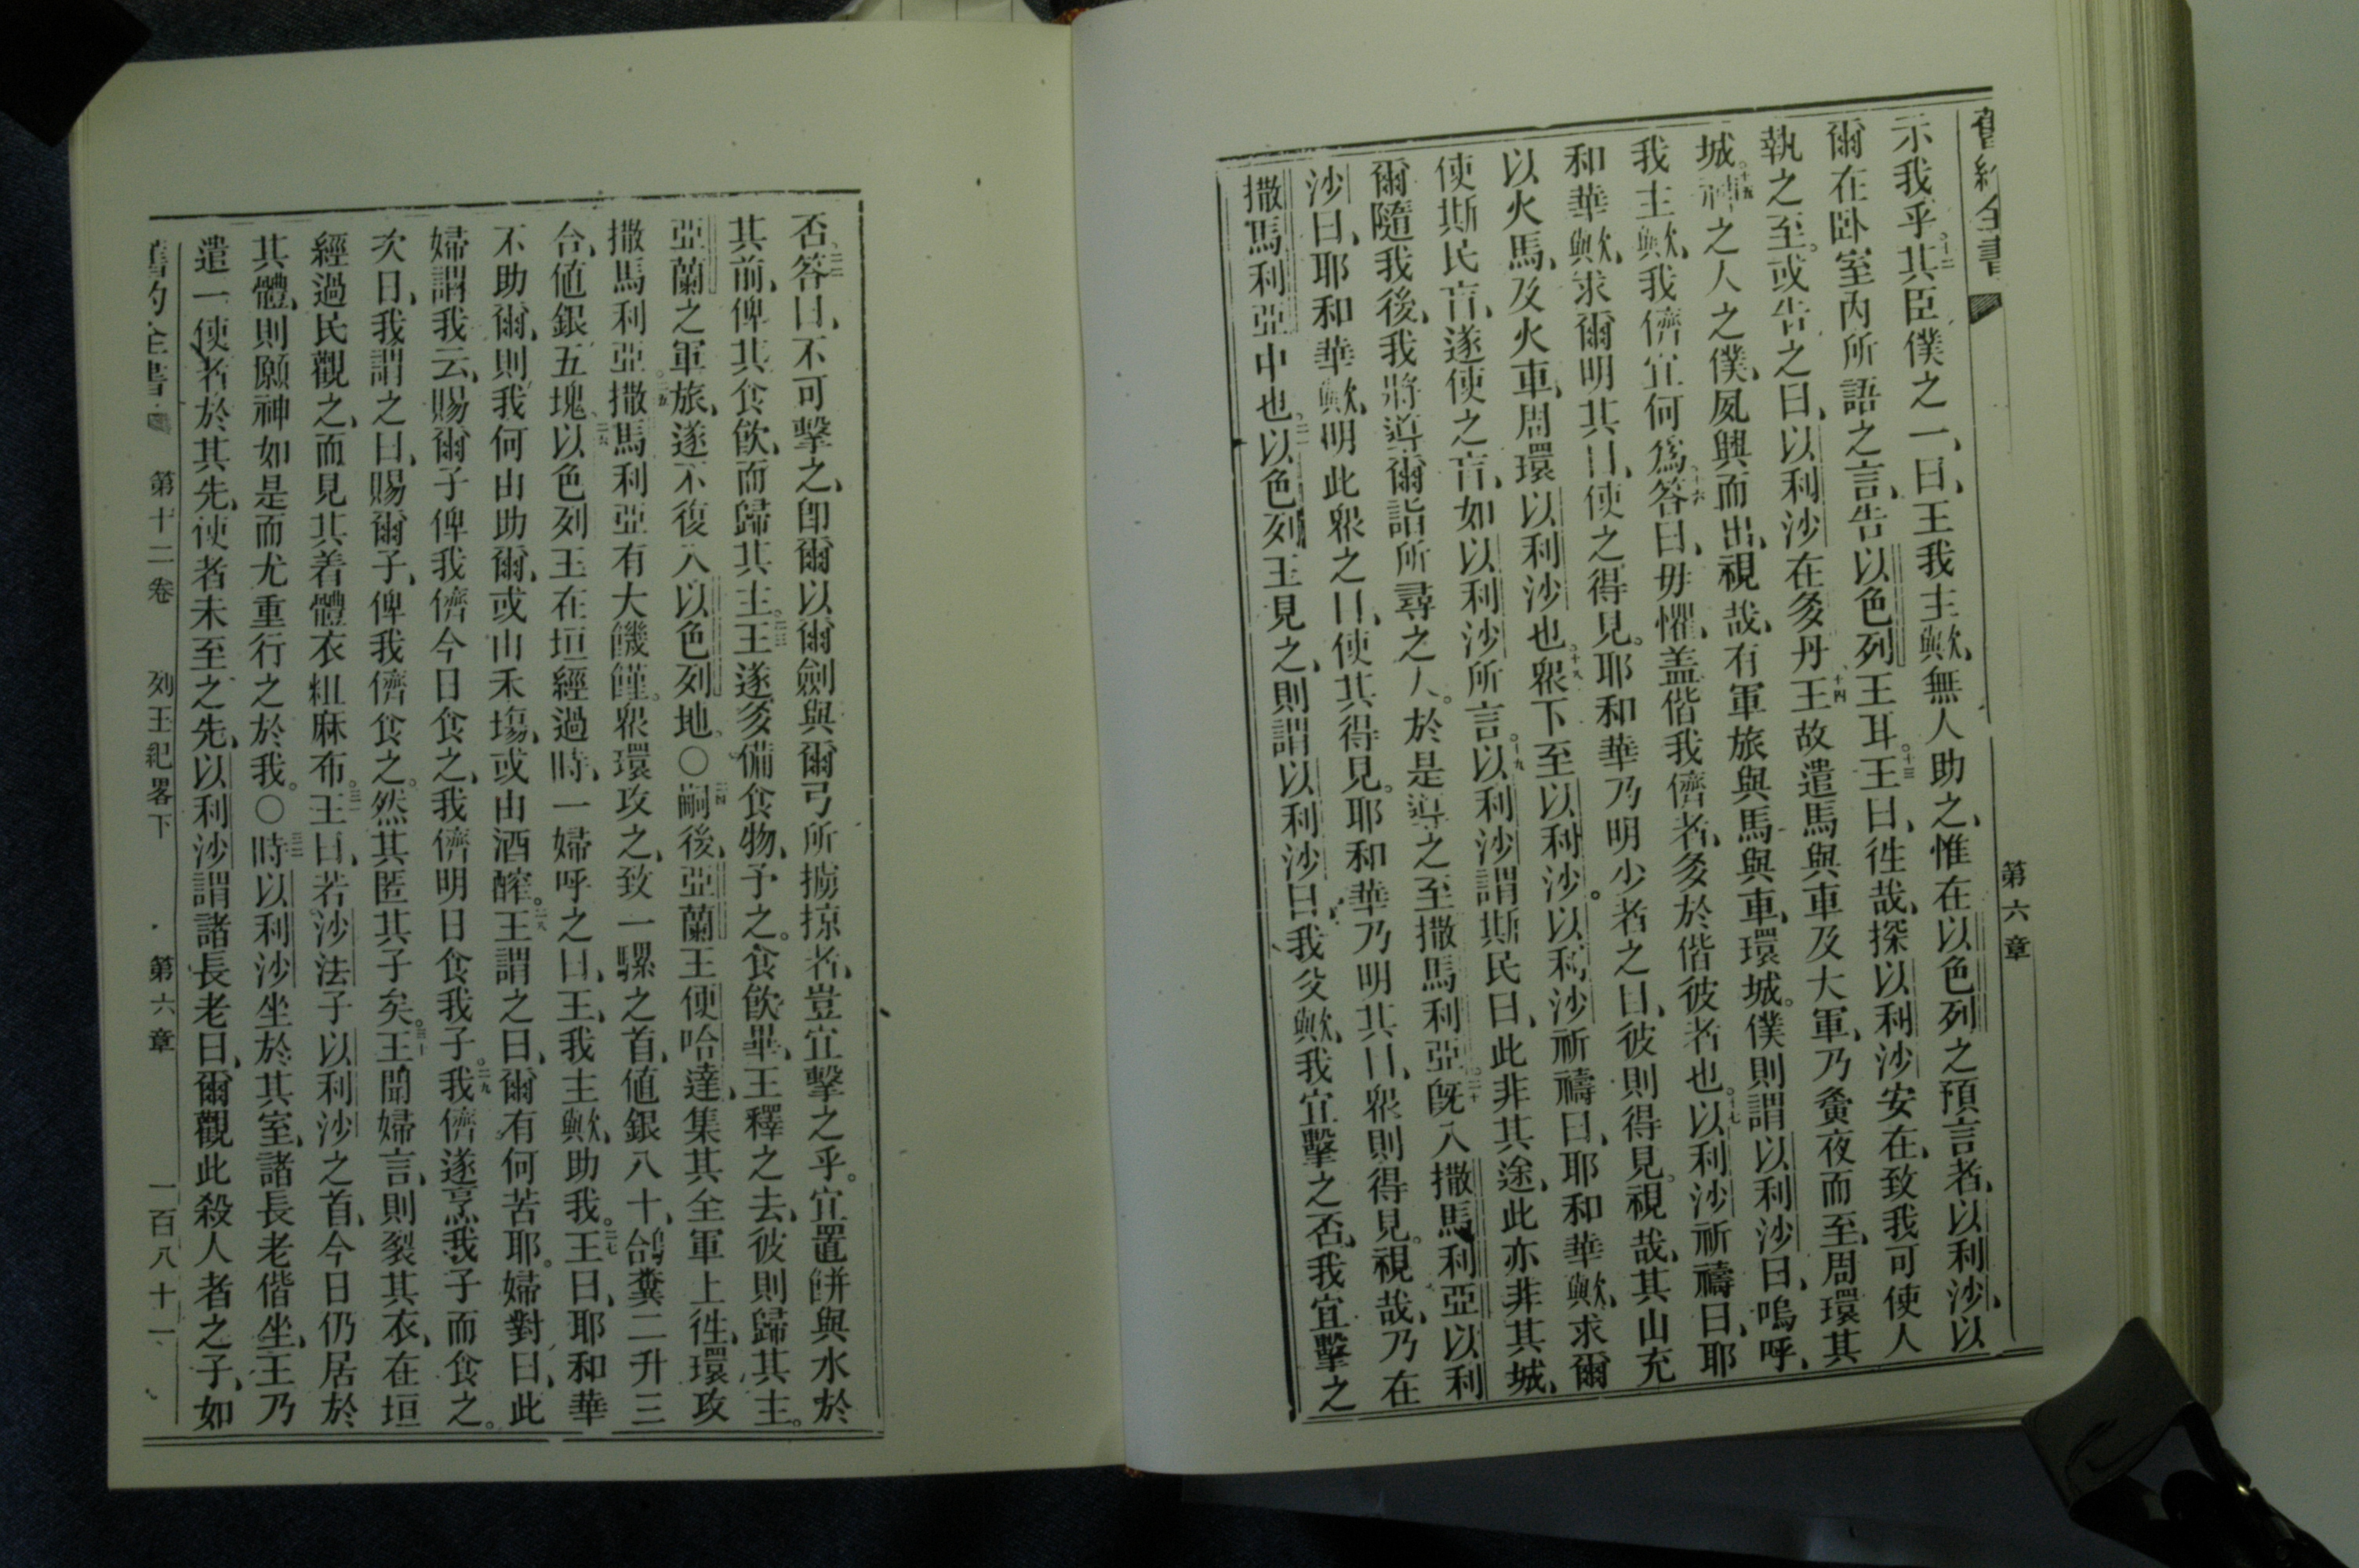 舊約全書 第六章
示我乎。十二其臣僕之一、曰、王我主歟、無人助之、惟在以色列之預言者、以利沙、以
爾在卧室內所語之言、告以色列王耳。十三王曰、徃哉、探以利沙安在、致我可使人
執之至。或告之曰、以利沙在多丹、十四王故遣馬與車及大軍、乃夤夜而至、周環其
城。十五神之人之僕、夙興而出、視哉、有軍旅與馬與車、環城。僕則謂以利沙曰、嗚呼、
我主歟、我儕宜何爲、十六答曰、毋懼、盖偕我儕者、多於偕彼者也。十七以利沙祈禱曰、耶
和華歟、求爾明其目、使之得見。耶和華乃明少者之目、彼則得見。視哉、其山充
以火馬、及火車、周環以利沙也。十八衆下至以利沙。以利沙祈禱曰、耶和華歟、求爾
使斯民盲、遂使之盲、如以利沙所言。十九以利沙謂斯民曰、此非其途、此亦非其城、
爾隨我後、我將導爾詣所尋之人。於是導之至撒馬利亞。二十旣入撒馬利亞以利
沙曰、耶和華歟、明此衆之目、使其得見。耶和華乃明其目、衆則得見。視哉、乃在
撒馬利亞中也。二一以色列王見之、則謂以利沙曰、我父歟、我宜擊之否、我宜擊之
否、二二答曰、不可擊之、卽爾以爾劍與爾弓所擄掠者、豈宜擊之乎。宜置餠與水於
其前、俾其食飮、而歸其主。二三王遂多備食物、予之。食飮畢、王釋之去、彼則歸其主。
亞蘭之軍旅、遂不復入以色列地。○二四嗣後、亞蘭王便哈達、集其全軍上徃、環攻
撒馬利亞。二五撒馬利亞有大饑饉。衆環攻之、致一騾之首、値銀八十、鴿糞二升三
合、値銀五塊、二六以色列王在垣經過時、一婦呼之曰、王、我主歟、助我。二七王曰、耶和華
不助爾、則我何由助爾、或由禾塲、或由酒醡。二八王謂之曰、爾有何苦耶。婦對曰、此
婦謂我云、賜爾子俾我儕今日食之、我儕明日食我子。二九我儕遂烹我子而食之。
次日、我謂之曰、賜爾子、俾我儕食之。然其匿其子矣。三十王聞婦言、則裂其衣、在垣
經過民觀之、而見其着體衣粗麻布。三一王曰、若沙法子以利沙之首、今日仍居於
其體、則願神如是而尤重行之於我。○三二時以利沙坐於其室、諸長老偕坐、王乃
遣一使者於其先、使者未至之先、以利沙謂諸長老曰、爾觀此殺人者之子、如
舊約全書 第十二卷 列王紀畧下 第六章 一百八十一